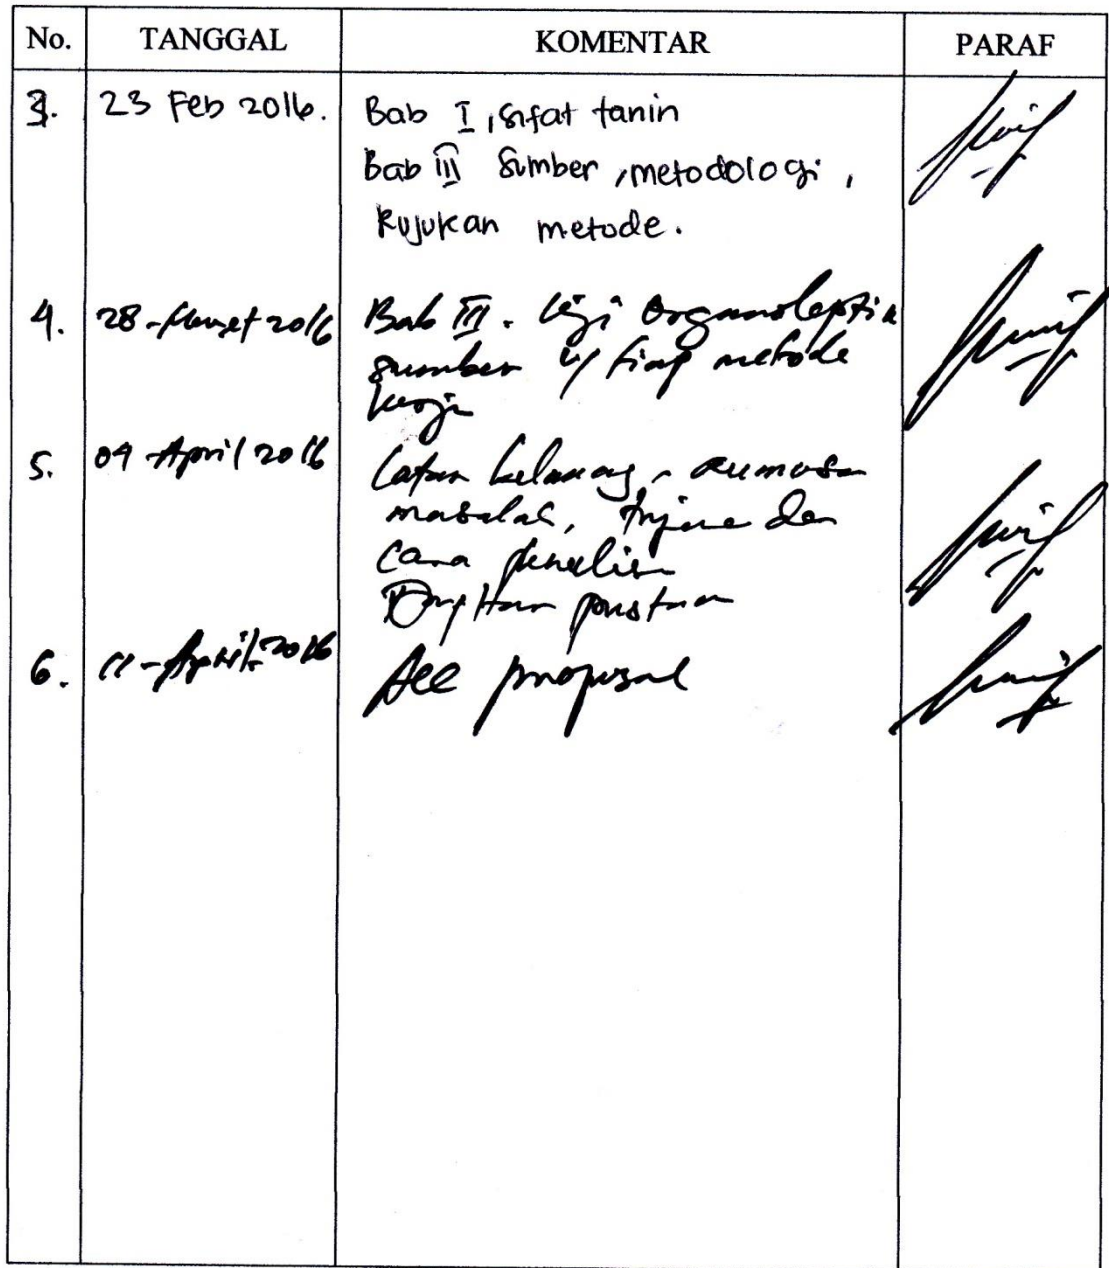 No. TANGGAL KOMENTAR PARAF
3. 23 Feb 2016. Bab I, sifat tanin
Bab III Sumber, metodologi,
Rujukan metode.
4. 28-Maret 2016 Bab III. Uji Organoleptik
sumber u/ tiap metode
kerja
5. 04-April 2016 Latar belakang, rumusan
masalah, tujuan dan
cara penulisan
pustaka
6. 11-April-2016 Acc proposal